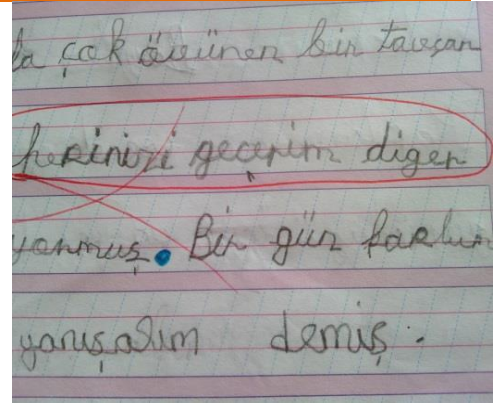 la çok övünen bir tavşan
hepinizi geçerim diger
yormuş. Bir gün
yarışalım demiş.